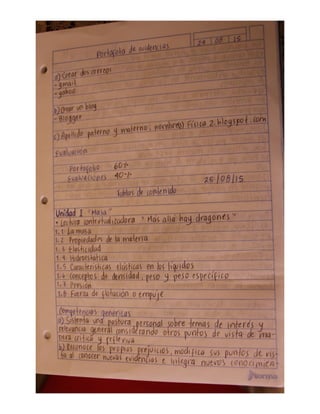 Portafolio de evidencias 24 08 15
a) Crear dos correos
- gmail
- yahoo
b) Crear un blog
- Blogger
c) Apellido paterno y materno, nombre(s) Física 2. blogspot. com
Evaluación
Portafolio 60%
Evaluaciones 40%
25/08/15
Tablas de contenido
Unidad 1 "Masa"
• Lectura contextualizadora "Más alla hay dragones"
1.1 La masa
1.2 Propiedades de la materia
1.3 Elasticidad
1.4 Hidrostática
1.5 Características elásticas en los líquidos
1.6 Conceptos de densidad, peso y peso específico
1.7 Presión
1.8 Fuerza de flotación o empuje
Competencias genericas
a) Sustenta una postura personal sobre temas de interés y
relevancia general considerando otros puntos de vista de ma-
nera crítica y reflexiva
b) Reconoce los propios prejuicios, modifica sus puntos de vis-
ta al conocer nuevas evidencias e integra nuevos conocimien
Norma